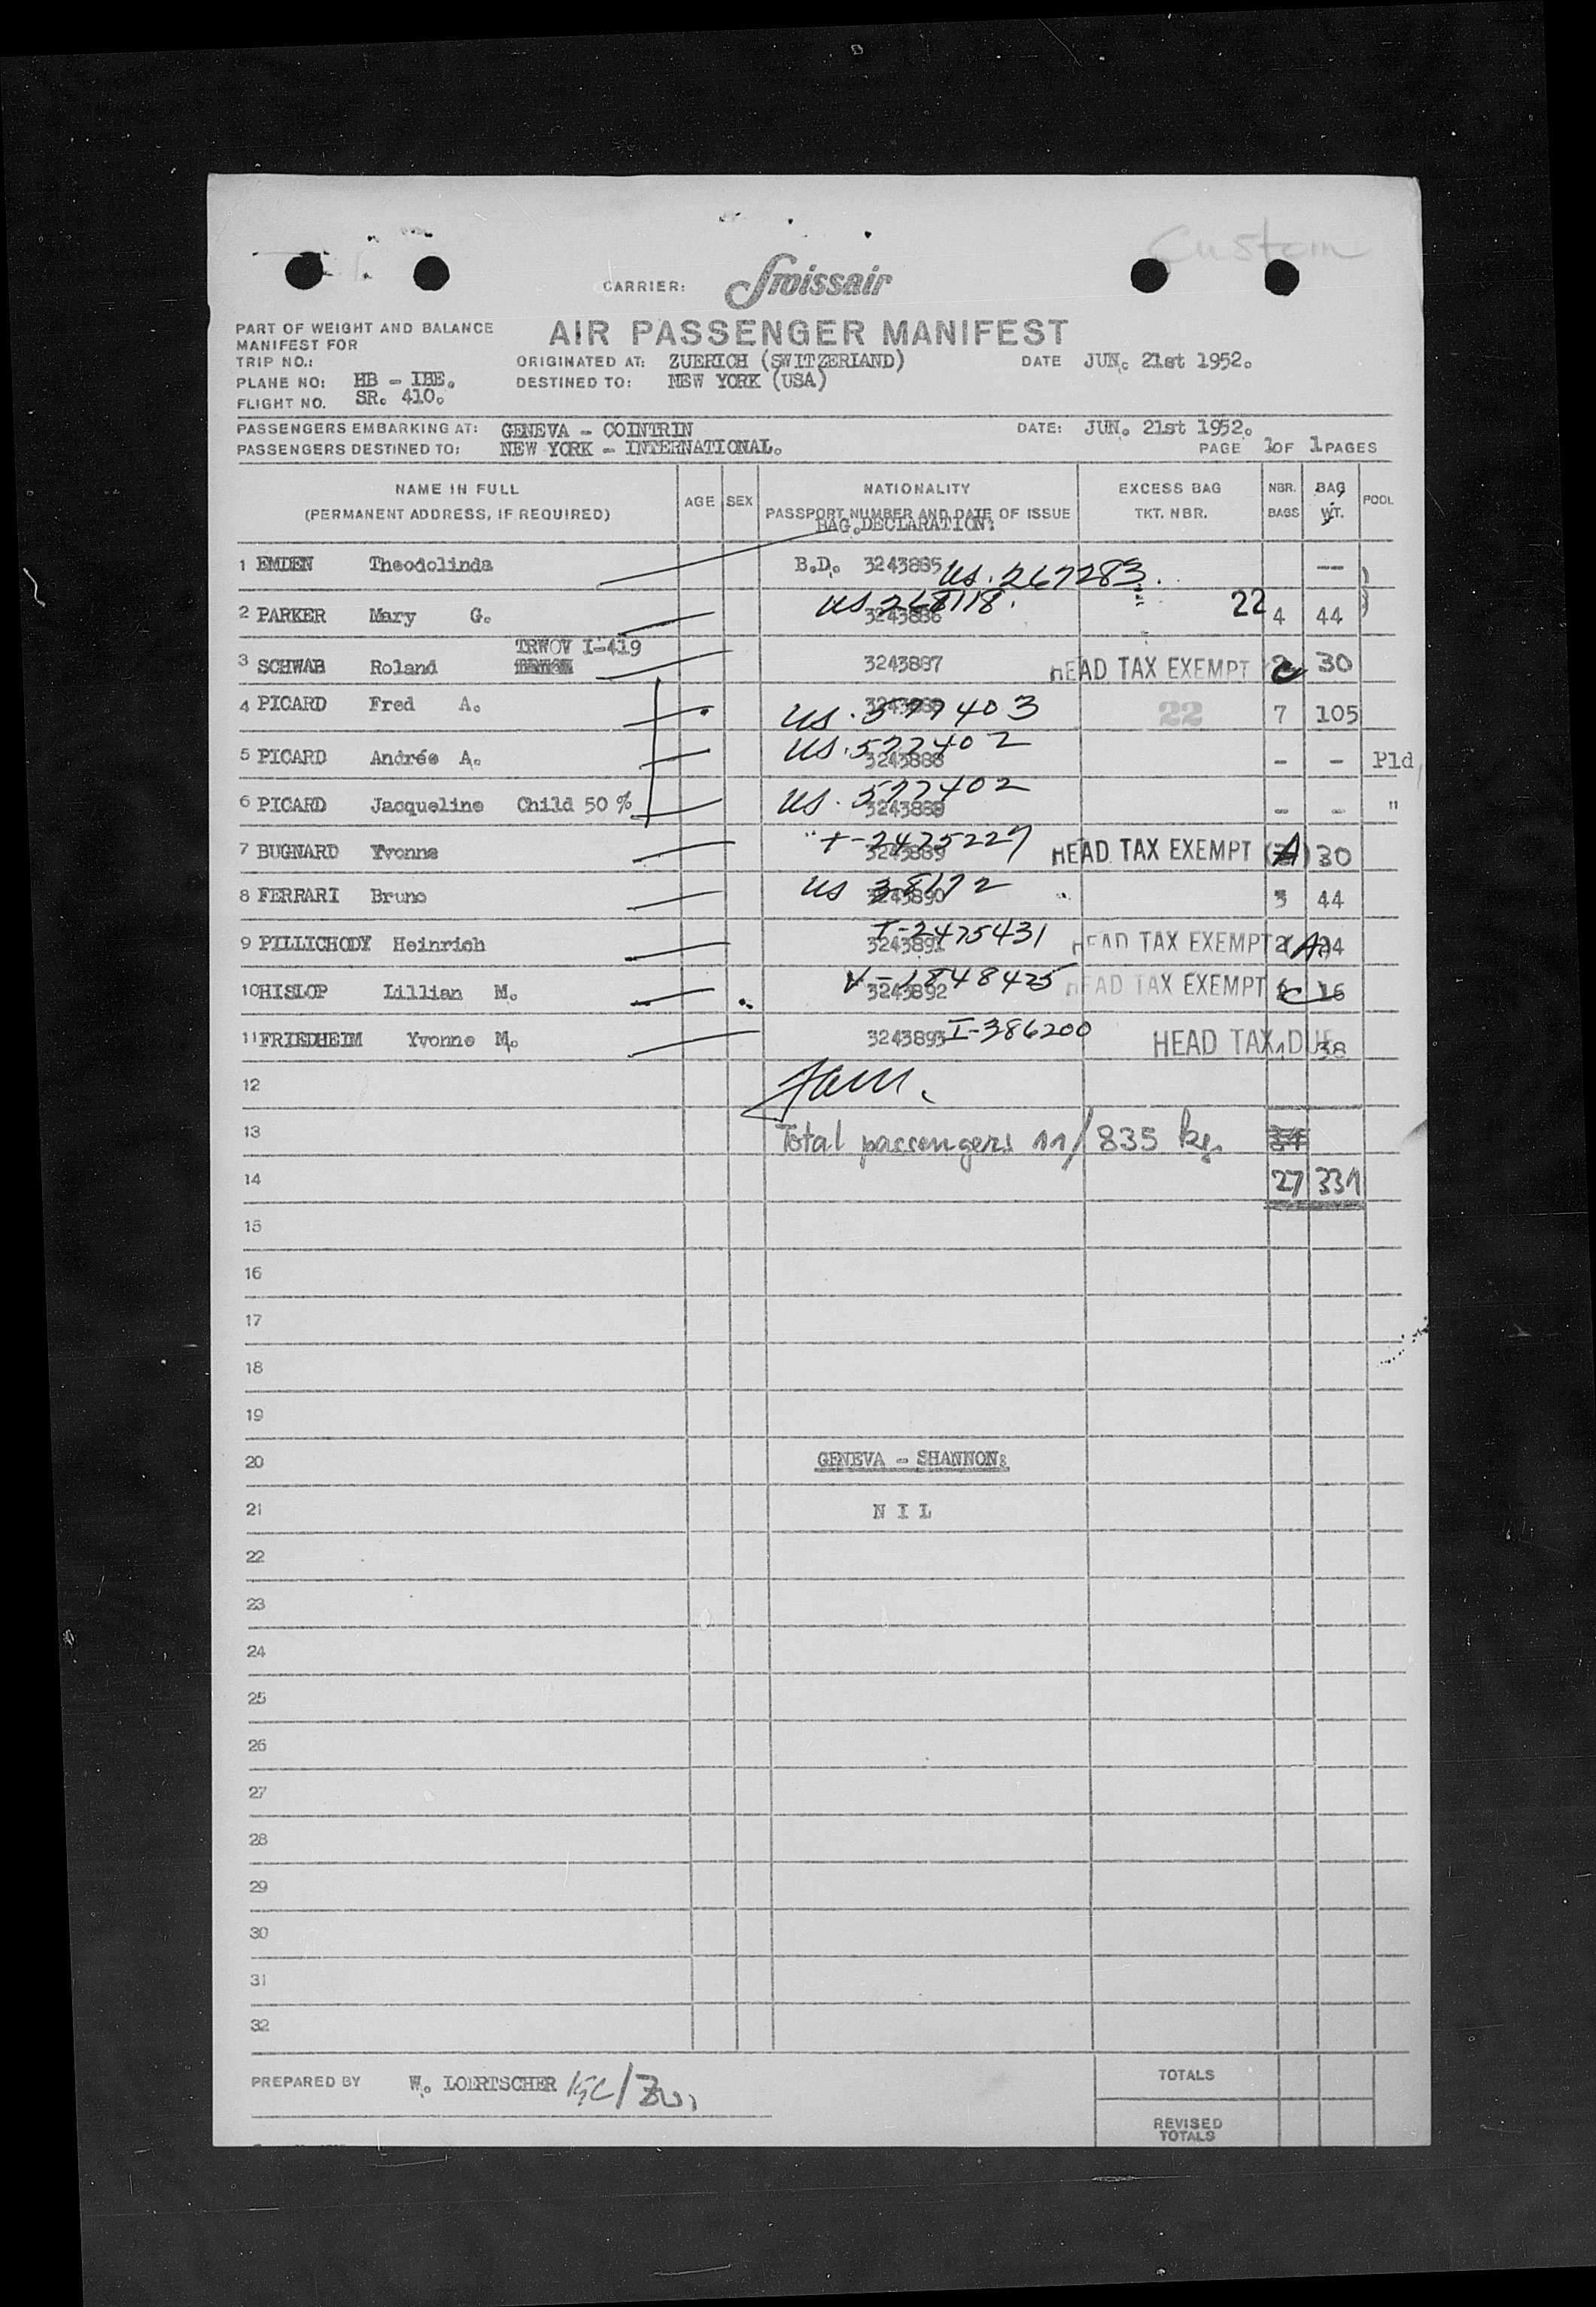 Custom
CARRIER: Swissair
PART OF WEIGHT AND BALANCE
MANIFEST FOR
AIR PASSENGER MANIFEST
TRIP NO.: ORIGINATED AT: ZUERICH (SWITZERLAND) DATE JUN. 21st 1952.
PLANE NO: HB - IBE. DESTINED TO: NEW YORK (USA)
FLIGHT NO. SR. 410.
PASSENGERS EMBARKING AT: GENEVA - COINTRIN DATE: JUN. 21st 1952.
PASSENGERS DESTINED TO: NEW YORK - INTERNATIONAL. PAGE 1 OF 1 PAGES
NAME IN FULL AGE SEX NATIONALITY EXCESS BAG NBR. BAG POOL
(PERMANENT ADDRESS, IF REQUIRED) PASSPORT NUMBER AND DATE OF ISSUE TKT. NBR. BAGS WT.
BAG.DECLARATION:
1 EMDEN Theodolinda B.D. 3243885 US. 267283. --
2 PARKER Mary G. US 268118. 3243886 22 4 44
TRWOV I-419
3 SCHWAB Roland 3243887 HEAD TAX EXEMPT C 30
4 PICARD Fred A. US. 577403 22 7 105
5 PICARD Andrée A. US. 577402 3243888 - - Pld
6 PICARD Jacqueline Child 50 % US. 577402 3243888 - - "
7 BUGNARD Yvonne 2475227 3243889 HEAD TAX EXEMPT (A) 30
8 FERRARI Bruno US 38172 3243890 3 44
9 PILLICHODY Heinrich I-2475431 3243891 HEAD TAX EXEMPT 2 (A) 24
10 HISLOP Lillian M. V-1848425 3243892 HEAD TAX EXEMPT C 16
11 FRIEDHEIM Yvonne M. 3243893 I-386200 HEAD TAX DUE 38
12
13 Total passengers 11/835 kg.
14 27 331
15
16
17
18
19
20 GENEVA - SHANNON:
21 N I L
22
23
24
25
26
27
28
29
30
31
32
PREPARED BY W. LOERTSCHER TOTALS
REVISED
TOTALS